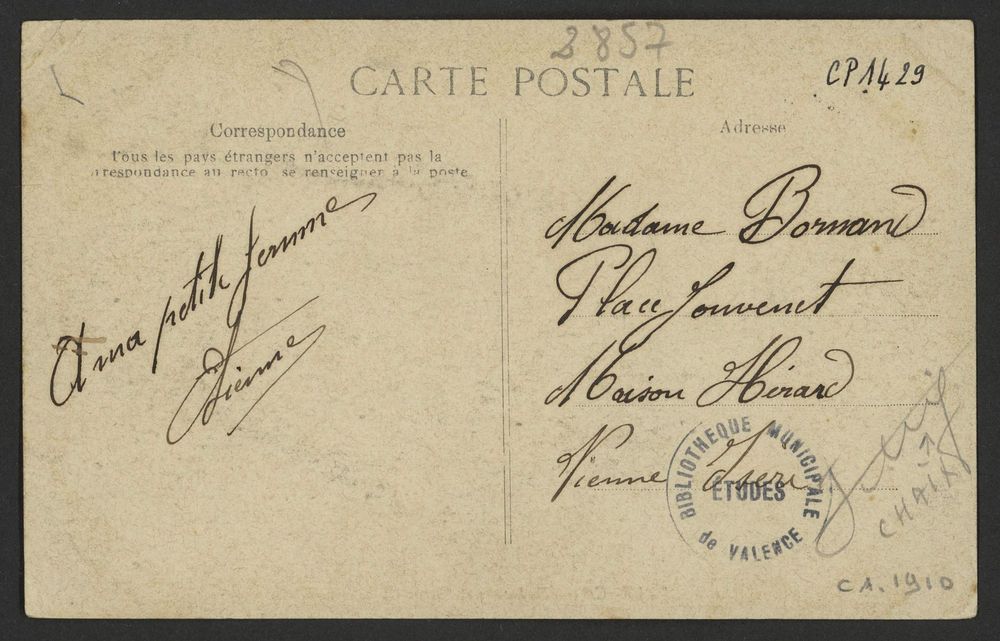 2857
CARTE POSTALE
CP1429
Correspondance
Tous les pays étrangers n'acceptent pas la
respondance au recto se renseigner à la poste
Adresse
A ma petite femme
Madame Bornand
Place Jouvenet
Maison Hérard
Vienne Isère
BIBLIOTHEQUE MUNICIPALE
ETUDES
de VALENCE
CHAIX
CA. 1910